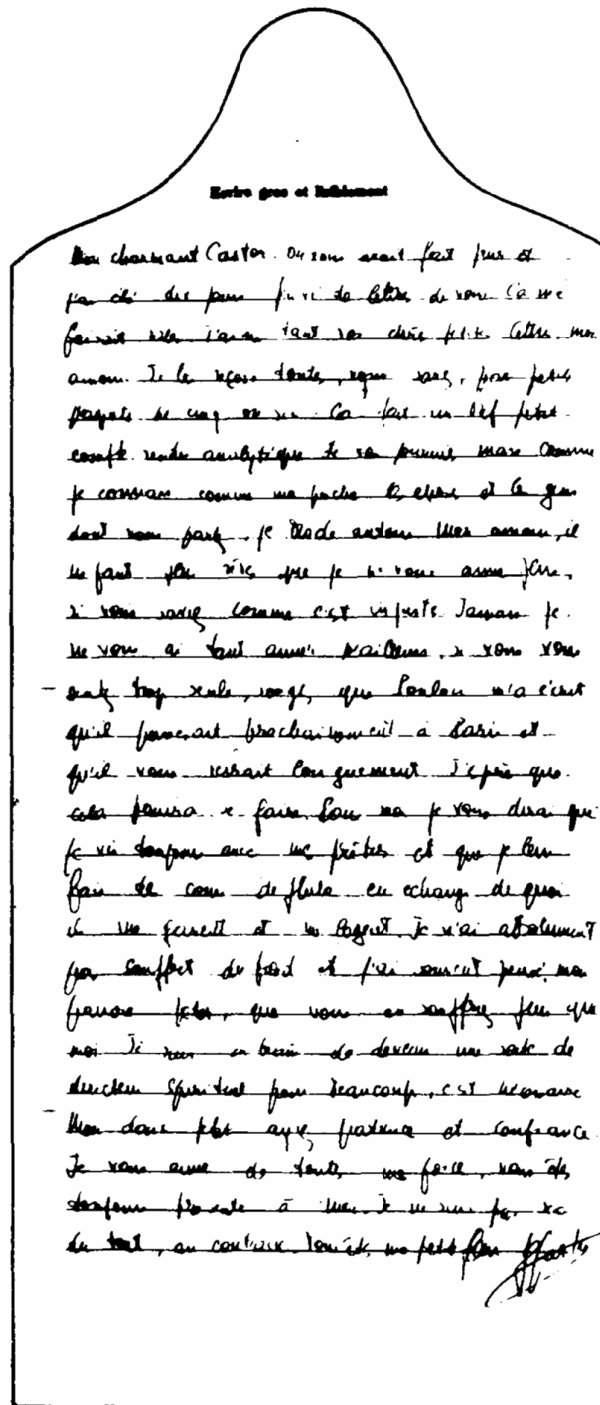 Ecrire gros et lisiblement
Mon charmant Castor. On vous avait fait plus et
j'ai été des jours privé de lettres de vous. Ça me
faisait j'aime tant vos chères petites lettres, mon
amour. Je les reçois toutes, vous savez, par petits
paquets de cinq ou six. Ça fait un bref petit
compte rendu analytique de vos journées mais comme
je connais comme ma poche les choses et les gens
dont vous parlez, je brode autour. Mon amour, il
ne faut pas dire que je ne vous aime plus,
si vous saviez comme c'est injuste. Jamais je
ne vous ai tant aimé. si vous vous
sentez trop seule, songez que Poulou m'a écrit
qu'il passerait prochainement à Paris et
qu'il vous verrait longuement. J'espère que
cela pourra se faire. Pour moi je vous dirai que
je vis toujours avec mes prêtres et que je leur
fais des cours de philo en échange de quoi
ils me et me logent. Je n'ai absolument
pas souffert du froid et j'ai souvent pensé, mon
pauvre petit, que vous en souffriez plus que
moi. Je suis en train de devenir une sorte de
directeur spirituel pour beaucoup, c'est
Mon doux petit, ayez patience et confiance.
Je vous aime de toutes mes forces, vous êtes
toujours présente à moi. Je ne suis pas sec
du tout, au contraire. Vous êtes ma petite fleur